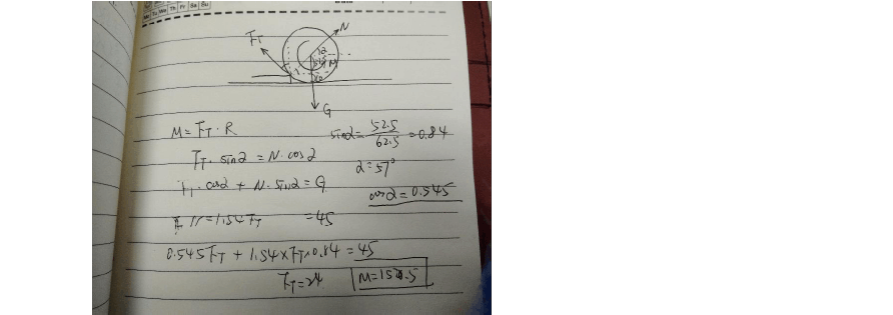 Mo Tu We Th Fr Sa Su
F_T
N
α
M
G
M = F_T · R
sinα = 52.5 / 62.5 = 0.84
F_T · sinα = N · cosα
α = 57°
F_T · cosα + N · sinα = G
cosα = 0.545
N = 1.54 F_T = 45
0.545 F_T + 1.54 × F_T × 0.84 = 45
F_T = 24